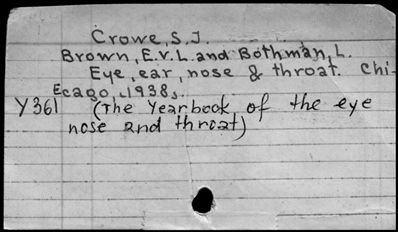 Crowe, S.J.
Brown, E.V.L. and Bothman, L.
Eye, ear, nose & throat. Chi-
cago, 1938.
Y361 (The Yearbook of the eye
nose and throat)